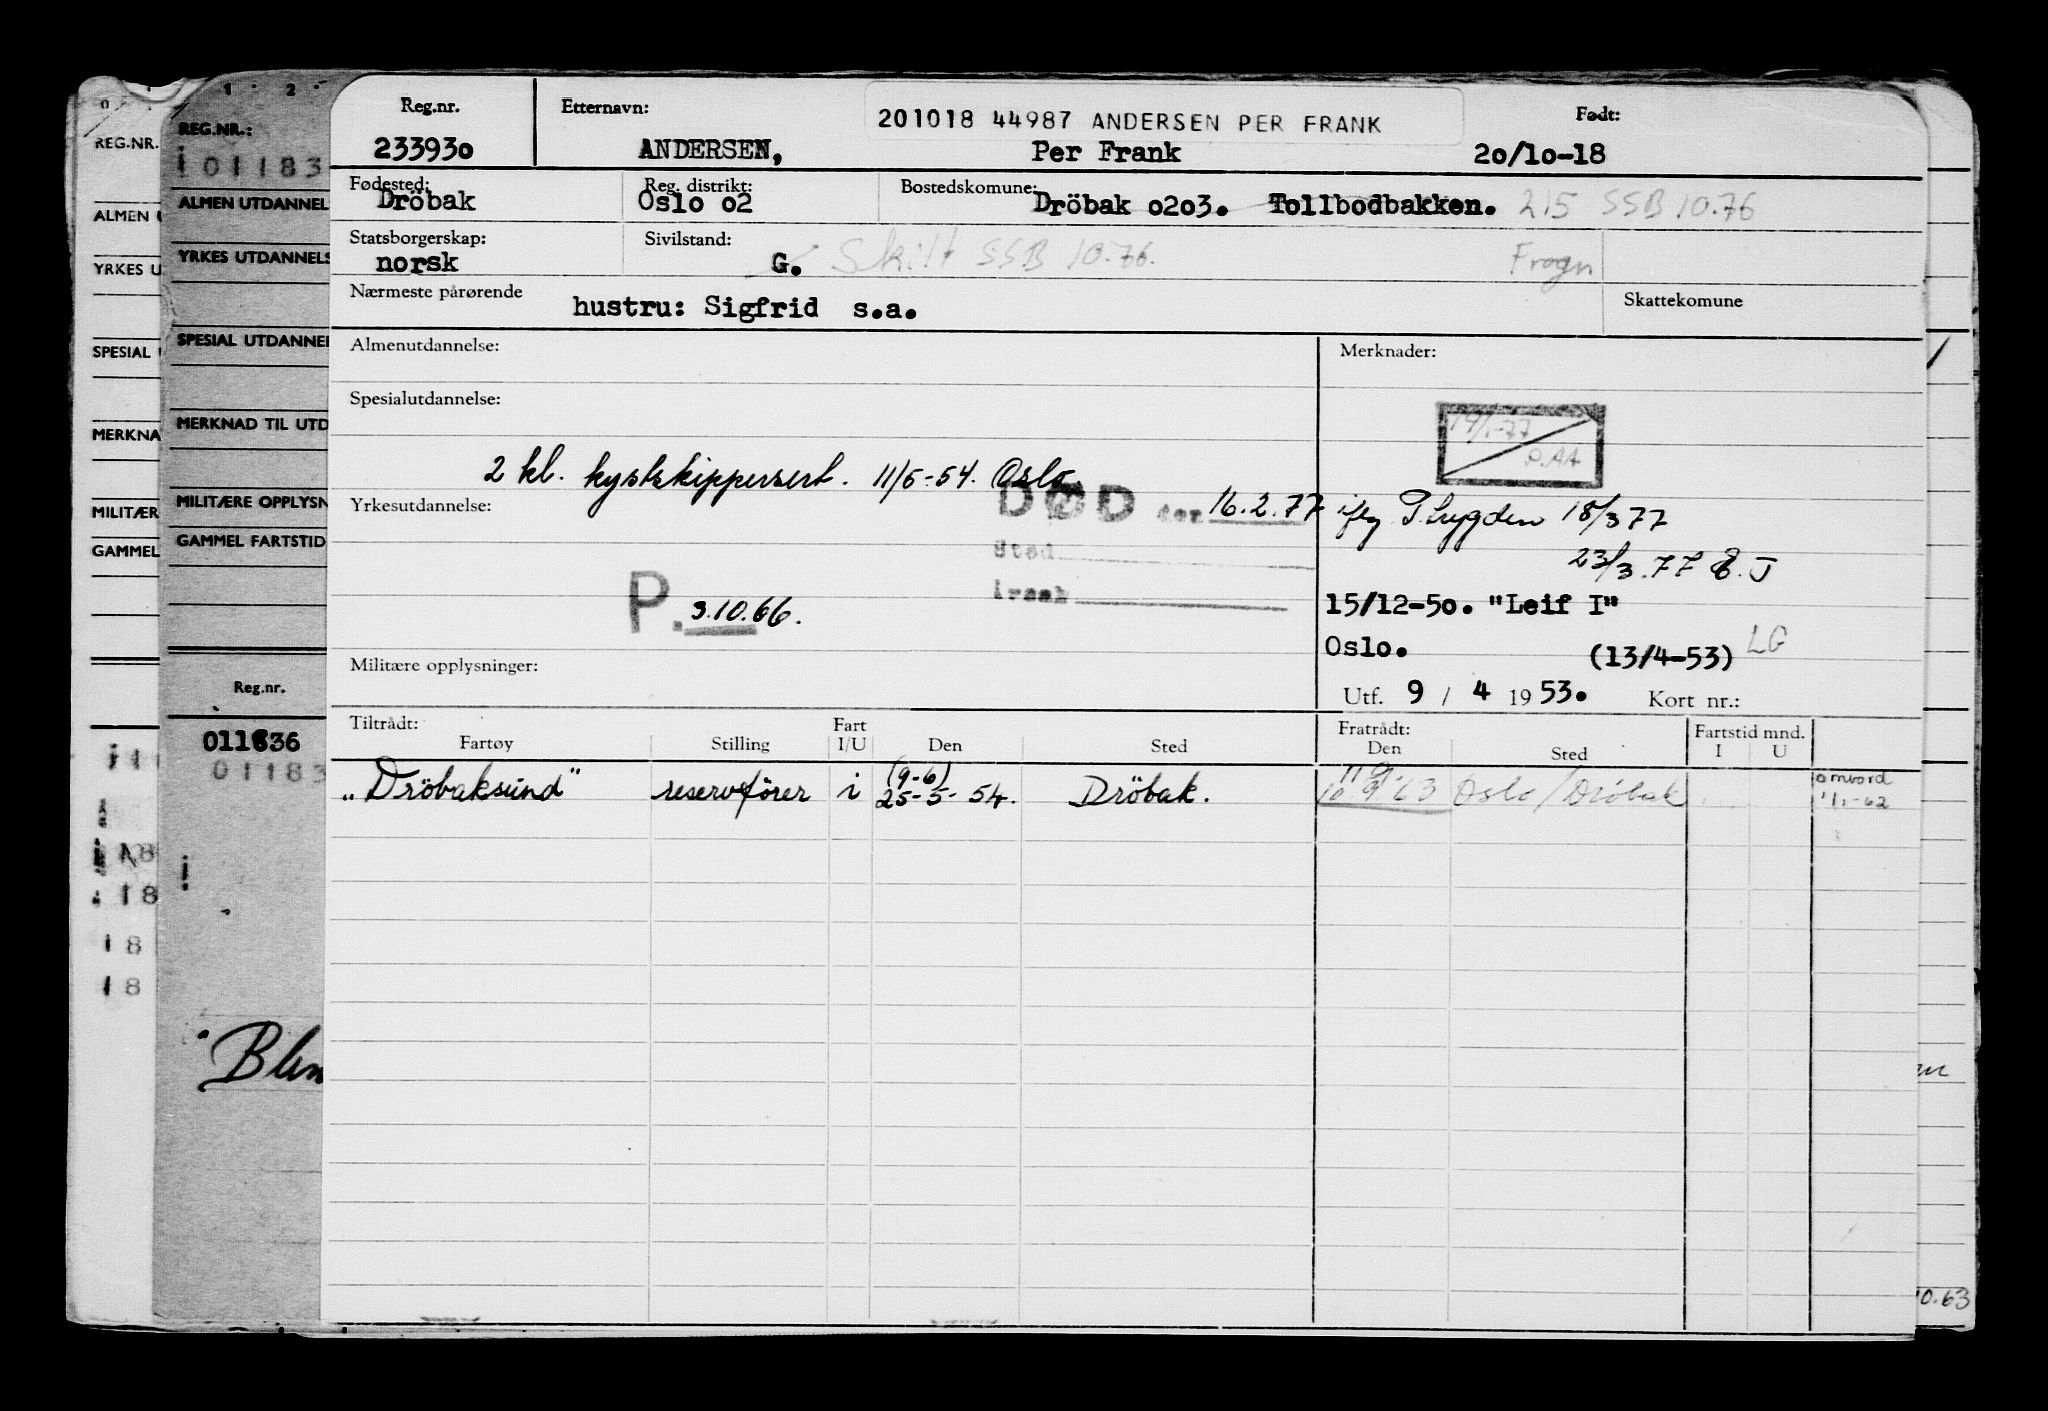 Reg.nr. Etternavn: 201018 44987 ANDERSEN PER FRANK Født:
233930 ANDERSEN, Per Frank 20/10-18
Fødested: Reg. distrikt: Bostedskomune:
Dröbak Oslo 02 Dröbak 0203. Tollbodbakken. 215 SSB 10.76
Statsborgerskap: Sivilstand:
norsk G. Skilt SSB 10.76. Frogn
Nærmeste pårørende Skattekomune
hustru: Sigfrid s.a.
Almenutdannelse: Merknader:
Spesialutdannelse:
19/1-77
P.AA
2 kl. kystskippersert. 11/5-54. Oslo.
Yrkesutdannelse: DØD den 16.2.77 ifg. Trygden 18/3 77
Sted 23/3.77 E.J
P. 3.10.66. årsak 15/12-50. "Leif I"
Oslo. (13/4-53) LG
Militære opplysninger:
Utf. 9 / 4 1953. Kort nr.:
Tiltrådt: Fart Fratrådt: Fartstid mnd.
Fartøy Stilling I/U Den Sted Den Sted I U
"Dröbaksund" reservefører i (9-6) 25-5-54. Dröbak. 63 Oslo/Dröbak omvord 1/1-62
0 1 2
REG.NR. REG.NR.:
i 01183
ALMEN U ALMEN UTDANNEL
YRKES U YRKES UTDANNELS
SPESIAL SPESIAL UTDANNEL
MERKNA MERKNAD TIL UTD
MILITÆR MILITÆRE OPPLYSN
GAMMEL GAMMEL FARTSTID
Reg.nr.
011836
01183
i 18
18
18
18
"Blen
10.63